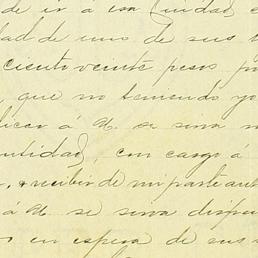 de ir á esa Ciudad
dad de uno de sus
ciento veinte pesos
que no teniendo yo
licar á U. se sirva
cantidad, con cargo á
recibir de mi parte
á U. se sirva
en espera de sus